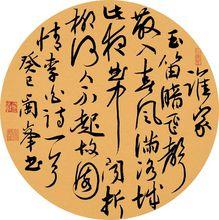 誰家
玉笛暗飛聲
散入春風满洛城
此夜曲中闻折
柳何人不起故園
情李白诗一首
癸巳